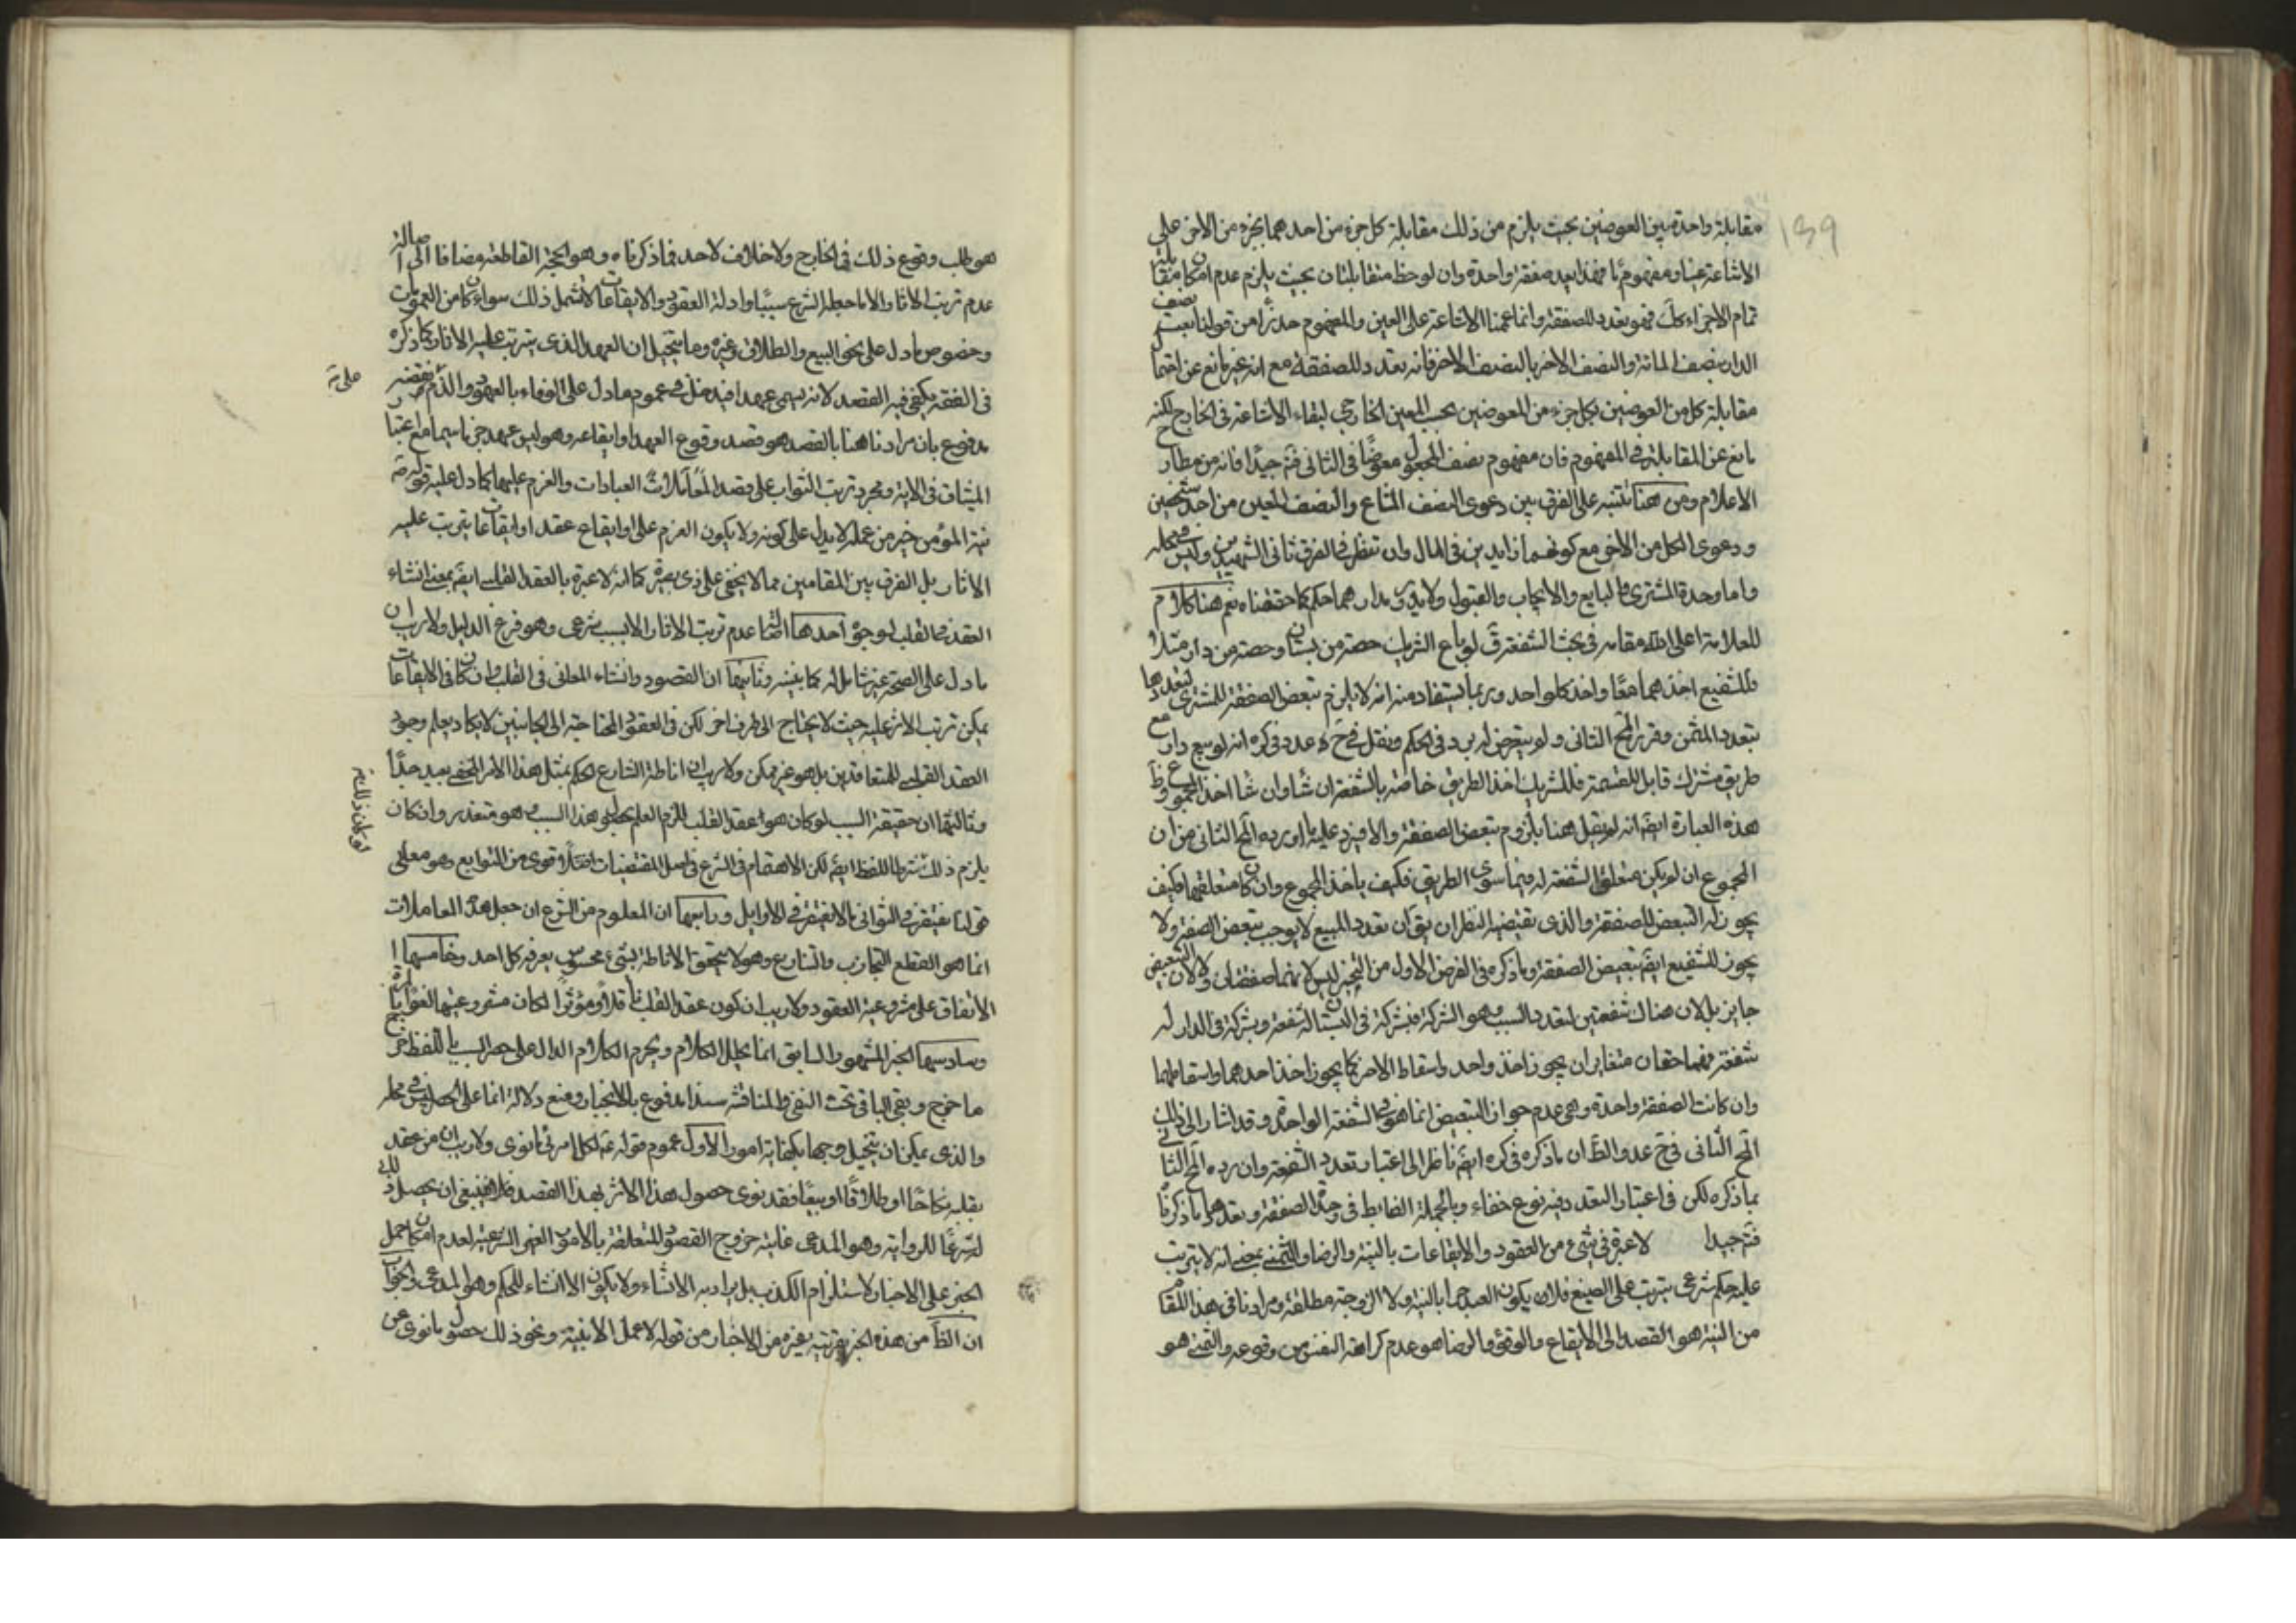 139
مقابلة واحدة بين العوضين بحيث يلزم من ذلك مقابلة كل جزء من احدهما بجزء من الاخر على
الاشاعة عينا ومفهوما فهذا بعد صفقة واحدة وان لوحظ متقابلتان بحيث يلزم عدم امكان مقابلة
تمام الاجزاء كك فهو تعدد للصفقة وانما عممنا الاشاعة على العين والمفهوم حذرا من قولنا بعت نصف
الدار بنصف المائة والنصف الاخر بالنصف الاخر فانه تعدد للصفقة مع انه غير مانع عن
مقابلة كل من العوضين بكل جزء من المعوضين بحسب المعين الخارجي لبقاء الاشاعة في الخارج لكنه
مانع عن المقابلة في المفهوم فان مفهوم نصف المجعول معوضا في الثاني فتم جيدا فانه من مطارح
الاعلام ومن هنا تتنبه على الفرق بين دعوى النصف المشاع والنصف المعين من احد شخصين
ودعوى الكل من الاخر مع كونهما زايدين في المال وان تنظر في الفرق ثاني الشهيدين وليس في محله
واما وحدة المشتري والبايع والايجاب والقبول ولا يدور مدارهما حكم كما حققناه نعم هنا كلام
للعلامة اعلى الله مقامه في بحث الشفعة ق لو باع الشريك حصة من بستان وحصة من دار مثلا
فللشفيع اخذهما معا واخذ كل واحد وربما يستفاد منه انه لا يلزم تبعض الصفقة للمشتري لتعددها
بتعدد المثمن وقرر المح الثاني ولم يتعرض لرد في الحكم ونقل في ح عد وفي كره انه لو بيع دار مع
طريق مشترك قابل للقسمة فللشريك اخذ الطريق خاصة بالشفعة ان شاء وان شاء اخذ المجموع وظ
هذه العبارة ايضا انه لم يقل هنا بلزوم تبعض الصفقة والا فيرد عليه ما اورده المح الثاني من ان
المجموع ان لم يكن متعلق الشفعة له فيما سوى الطريق فكيف ياخذ المجموع وان كان متعلقهما فكيف
يجوز له التبعض للصفقة والذي يقتضيه النظر ان يق ان تعدد المبيع لا يوجب تبعض الصفقة ولا
يجوز للشفيع ايضا تبعيض الصفقة وما ذكره في الفرض الاول من التجيز ليس لانهما صفقتان ولا لان التبعيض
جايز بل لان هناك شفعتين لتعدد السبب وهو الشركة فبشركة في البستان له شفعة وبشركة في الدار له
شفعة فهما حقان متغايران يجوز اخذ واحد واسقاط الاخر كما يجوز اخذ احدهما واسقاطهما
وان كانت الصفقة واحدة وهي عدم جواز التبعيض انما هو في الشفعة الواحدة وقد اشار الى ذلك
المح الثاني في ح عد والظ ان ما ذكره في كره ايضا ناظر الى اعتبار تعدد الشفعة وان رده المح الثاني
بما ذكره لكن في اعتبار التعدد فيه نوع خفاء وبالجملة الضابط في وحدة الصفقة وتعددها ما ذكرنا
فتم جيدا لا عبرة في شيء من العقود والايقاعات بالنية والرضا والتمني بمعنى انه لا يترتب
عليه حكم شرعي يترتب على الصيغ فلا يكون العبد حرا بالنية ولا الزوجة مطلقة ومرادنا في هذا المقام
من النية هو القصد الى الايقاع والوقوع والرضا هو عدم كراهة النفس من وقوعه والتمني هو
هو طلب وقوع ذلك في الخارج ولا خلاف لاحد فيما ذكرناه وهو الحجة القاطعة مضافا الى اصالة
عدم ترتب الاثار الا ما جعله الشرع سببا وادلة العقود والايقاعات لا تشمل ذلك سواء كان من العمومات
وخصوص ما دل على نحو البيع والطلاق وغيره وما يتخيل ان العهد الذي يترتب عليه الاثار كما ذكره
في الفقه يكفي فيه القصد لانه يسمى عهدا فيدخل في عموم ما دل على الوفاء بالعهود والذم على نقضه
مدفوع بان مرادنا هنا بالقصد هو قصد وقوع العهد او ايقاعه وهو ليس عهد جزما سيما مع اعتبار
الميثاق في الاية ومجرد ترتب الثواب على قصد المعاملات العبادات والعزم عليها كما دل عليه قوله ص
نية المؤمن خير من عمله لا يدل على كونه ولا يكون العزم على او ايقاع عقد او ايقاعا يترتب عليه
الاثار بل الفرق بين المقامين مما لا يخفى على ذي بصيرة كما انه لا عبرة بالعقد القلبي ايضا بمعنى انشاء
العقد في القلب لوجوه احدها اصالة عدم ترتب الاثار الا بسبب شرعي وهو فرع الدليل ولا ريب ان
ما دل على الصحة غير شامل له كما بينه وثانيها ان القصود وانشاء المعاني في القلب وان كان في الايقاعات
يمكن ترتب الاثر عليه حيث لا يحتاج الى طرف اخر لكن في العقود المحتاجة الى الجانبين لا يكاد يعلم وجود
العقد القلبي للمتعاقدين بل هو غير ممكن ولا ريب ان اناطة الشارع الحكم بمثل هذا الامر المخفي بعيد جدا
وثالثها ان حقيقة السبب لو كان هو عقد القلب للزم العلم بحصول هذا السبب وهو متعذر وان كان
يلزم ذلك بشرط اللفظ ايضا لكن الاهتمام في الشرع في اصل المقتضيات اقوى من التوابع وهو معنى
قولنا يغتفر في الثواني ما لا يغتفر في الاوايل ورابعها ان المعلوم من الشرع ان جعل هذه المعاملات
انما هو لقطع التجاذب والتنازع وهو لا يتحقق الا باناطة بشيء محسوس يعرفه كل احد وخامسها
الاتفاق على مشروعية العقود ولا ريب ان كون عقد القلب مؤثرا لكان مشروعيتها لغوا
وسادسها الخبر المشهور السابق انما يحلل الكلام ويحرم الكلام الدال على حصر السبب باللفظ خرج
ما خرج وبقي الباقي تحت النفي والمناقشة سندا مدفوع بالانجبار ومنع دلالة انما على الحصر ليس في محله
والذي يمكن ان يتخيل وجها بكفاية امور الاول عموم قوله ص لكل امرئ ما نوى ولا ريب ان من عقد
بقلبه نكاحا او طلاقا او بيعا فقد نوى حصول هذا الاثر بهذا القصد فلا ينبغي ان يحصل ذلك له
شرعا للرواية وهو المدعى غاية خروج القصود المتعلقة بالامور الغير الشرعية لعدم امكان حمل
الخبر على الاخبار لاستلزام الكذب بل يراد به الانشاء ولا يكون الا انشاء للحكم وهو المدعى في الجواب
ان الظ من هذه الخبر بقرينة غيره من الاخبار من قوله لا عمل الا بنية ونحو ذلك حصول ما نوى من